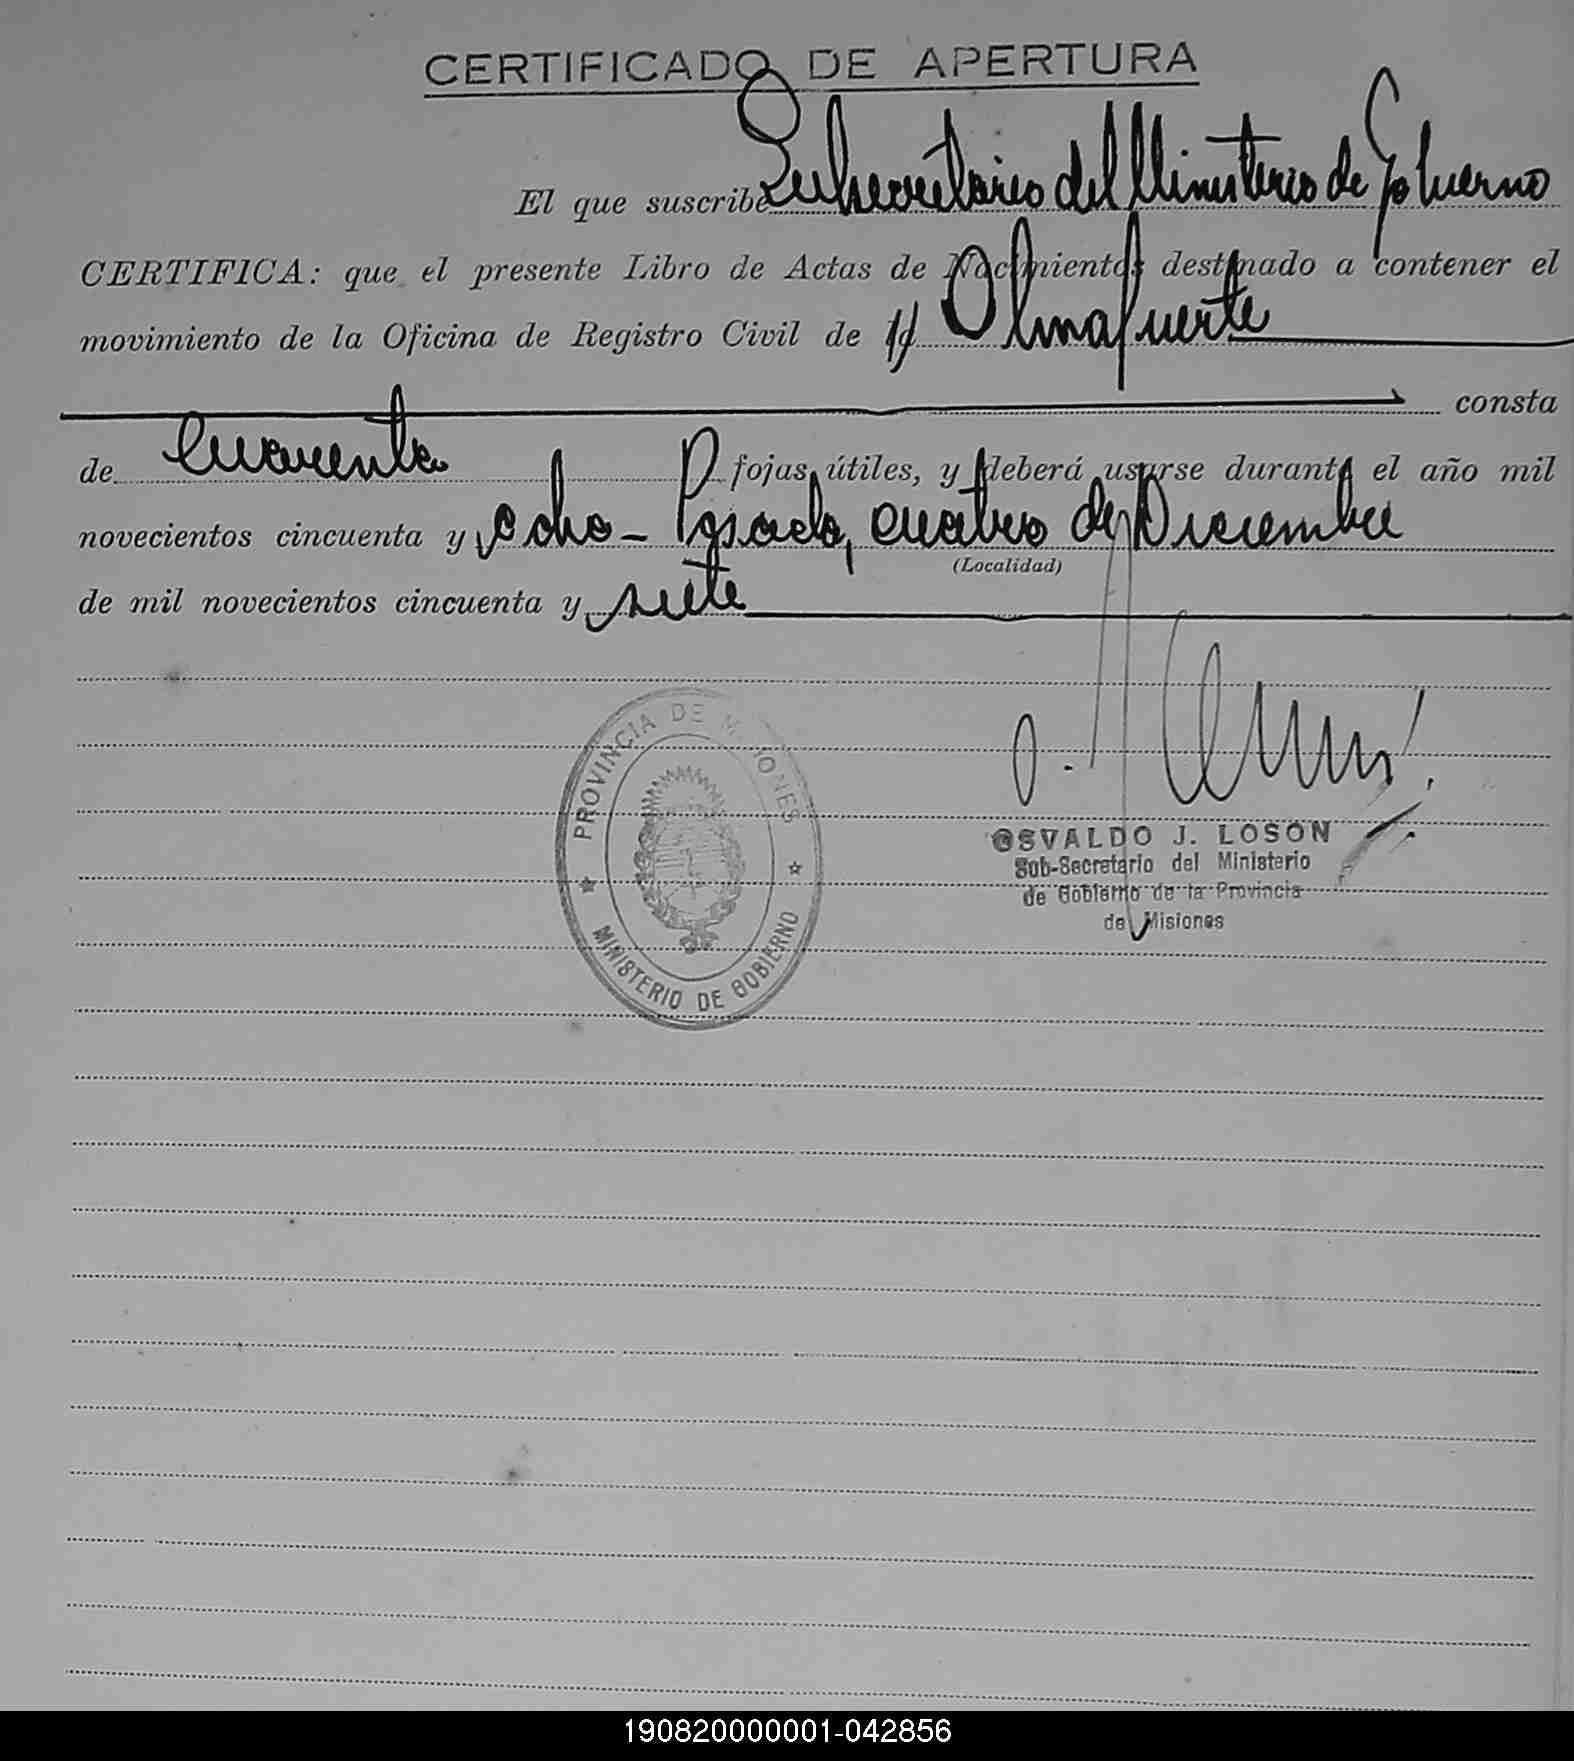 CERTIFICADO DE APERTURA
El que suscribe Subsecretario del Ministerio de Gobierno
CERTIFICA: que el presente Libro de Actas de Nacimientos destinado a contener el
movimiento de la Oficina de Registro Civil de Almafuerte
consta
de cuarenta fojas útiles, y deberá usarse durante el año mil
novecientos cincuenta y ocho - Posadas, cuatro de Diciembre
(Localidad)
de mil novecientos cincuenta y siete
PROVINCIA DE MISIONES
MINISTERIO DE GOBIERNO
OSVALDO J. LOSON
Sub-Secretario del Ministerio
de Gobierno de la Provincia
de Misiones
190820000001-042856